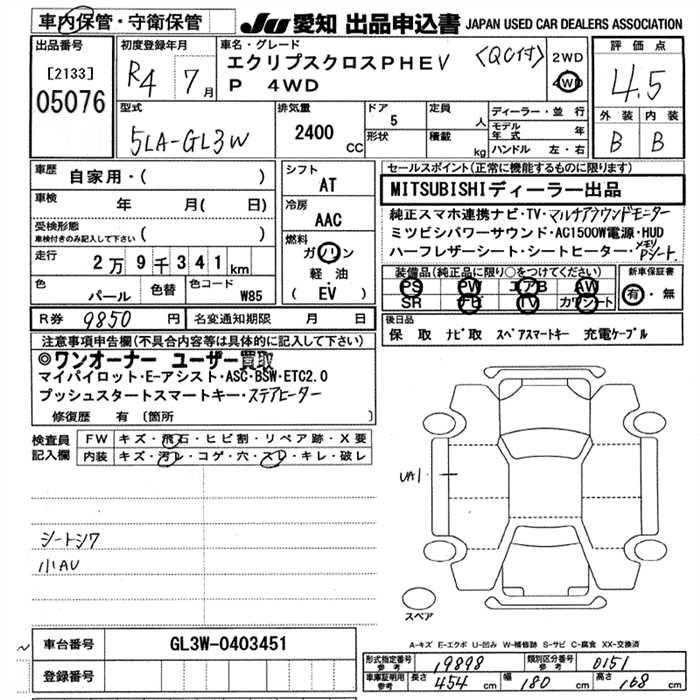 車内保管・守衛保管
JU 愛知 出品申込書 JAPAN USED CAR DEALERS ASSOCIATION
出品番号
[2133]
05076
初度登録年月
R4 7月
車名・グレード
エクリプスクロスPHEV 〈QC付〉
P 4WD
2WD
4WD
評価点
4.5
外装 内装
B B
型式
5LA-GL3W
排気量
2400 CC
ドア
5
形状
定員
人
積載
kg
ディーラー・並行
モデル年式 年
ハンドル 左・右
車歴
自家用・( )
車検
年 月( 日)
受検形態
車検付きのみ記入して下さい ( )
走行
2万9千341km
色
パール
色替
色コード
W85
シフト
AT
冷房
AAC
燃料
ガソリン
軽油
( EV )
セールスポイント(正常に機能するものに限ります)
MITSUBISHIディーラー出品
純正スマホ連携ナビ・TV・マルチアラウンドモニター
ミツビシパワーサウンド・AC1500W電源・HUD
ハーフレザーシート・シートヒーター・メモリPシート
装備品(純正品に限り○をつけてください)
PS PW エアB AW
SR ナビ TV カワシート
新車保証書
有・無
R券 9850円 名変通知期限 月 日
後日品
保 取 ナビ取 スペアスマートキー 充電ケーブル
注意事項申告欄(不具合内容等は具体的に記入して下さい)
◎ワンオーナー ユーザー買取
マイパイロット・E-アシスト・ASC・BSW・ETC2.0
プッシュスタートスマートキー・ステアヒーター
修復歴 有 (箇所 )
検査員記入欄
FW キズ・飛石・ヒビ割・リペア跡・X要
内装 キズ・汚レ・コゲ・穴・スレ・キレ・破レ
シートシワ
小AU
UA1
スペア
車台番号 GL3W-0403451
登録番号
A-キズ E-エクボ U-凹み W-補修跡 S-サビ C-腐食 XX-交換済
形式指定番号 参考 19898 類別区分番号 参考 0151
車庫証明用 参考 長さ 454 cm 幅 180 cm 高さ 168 cm